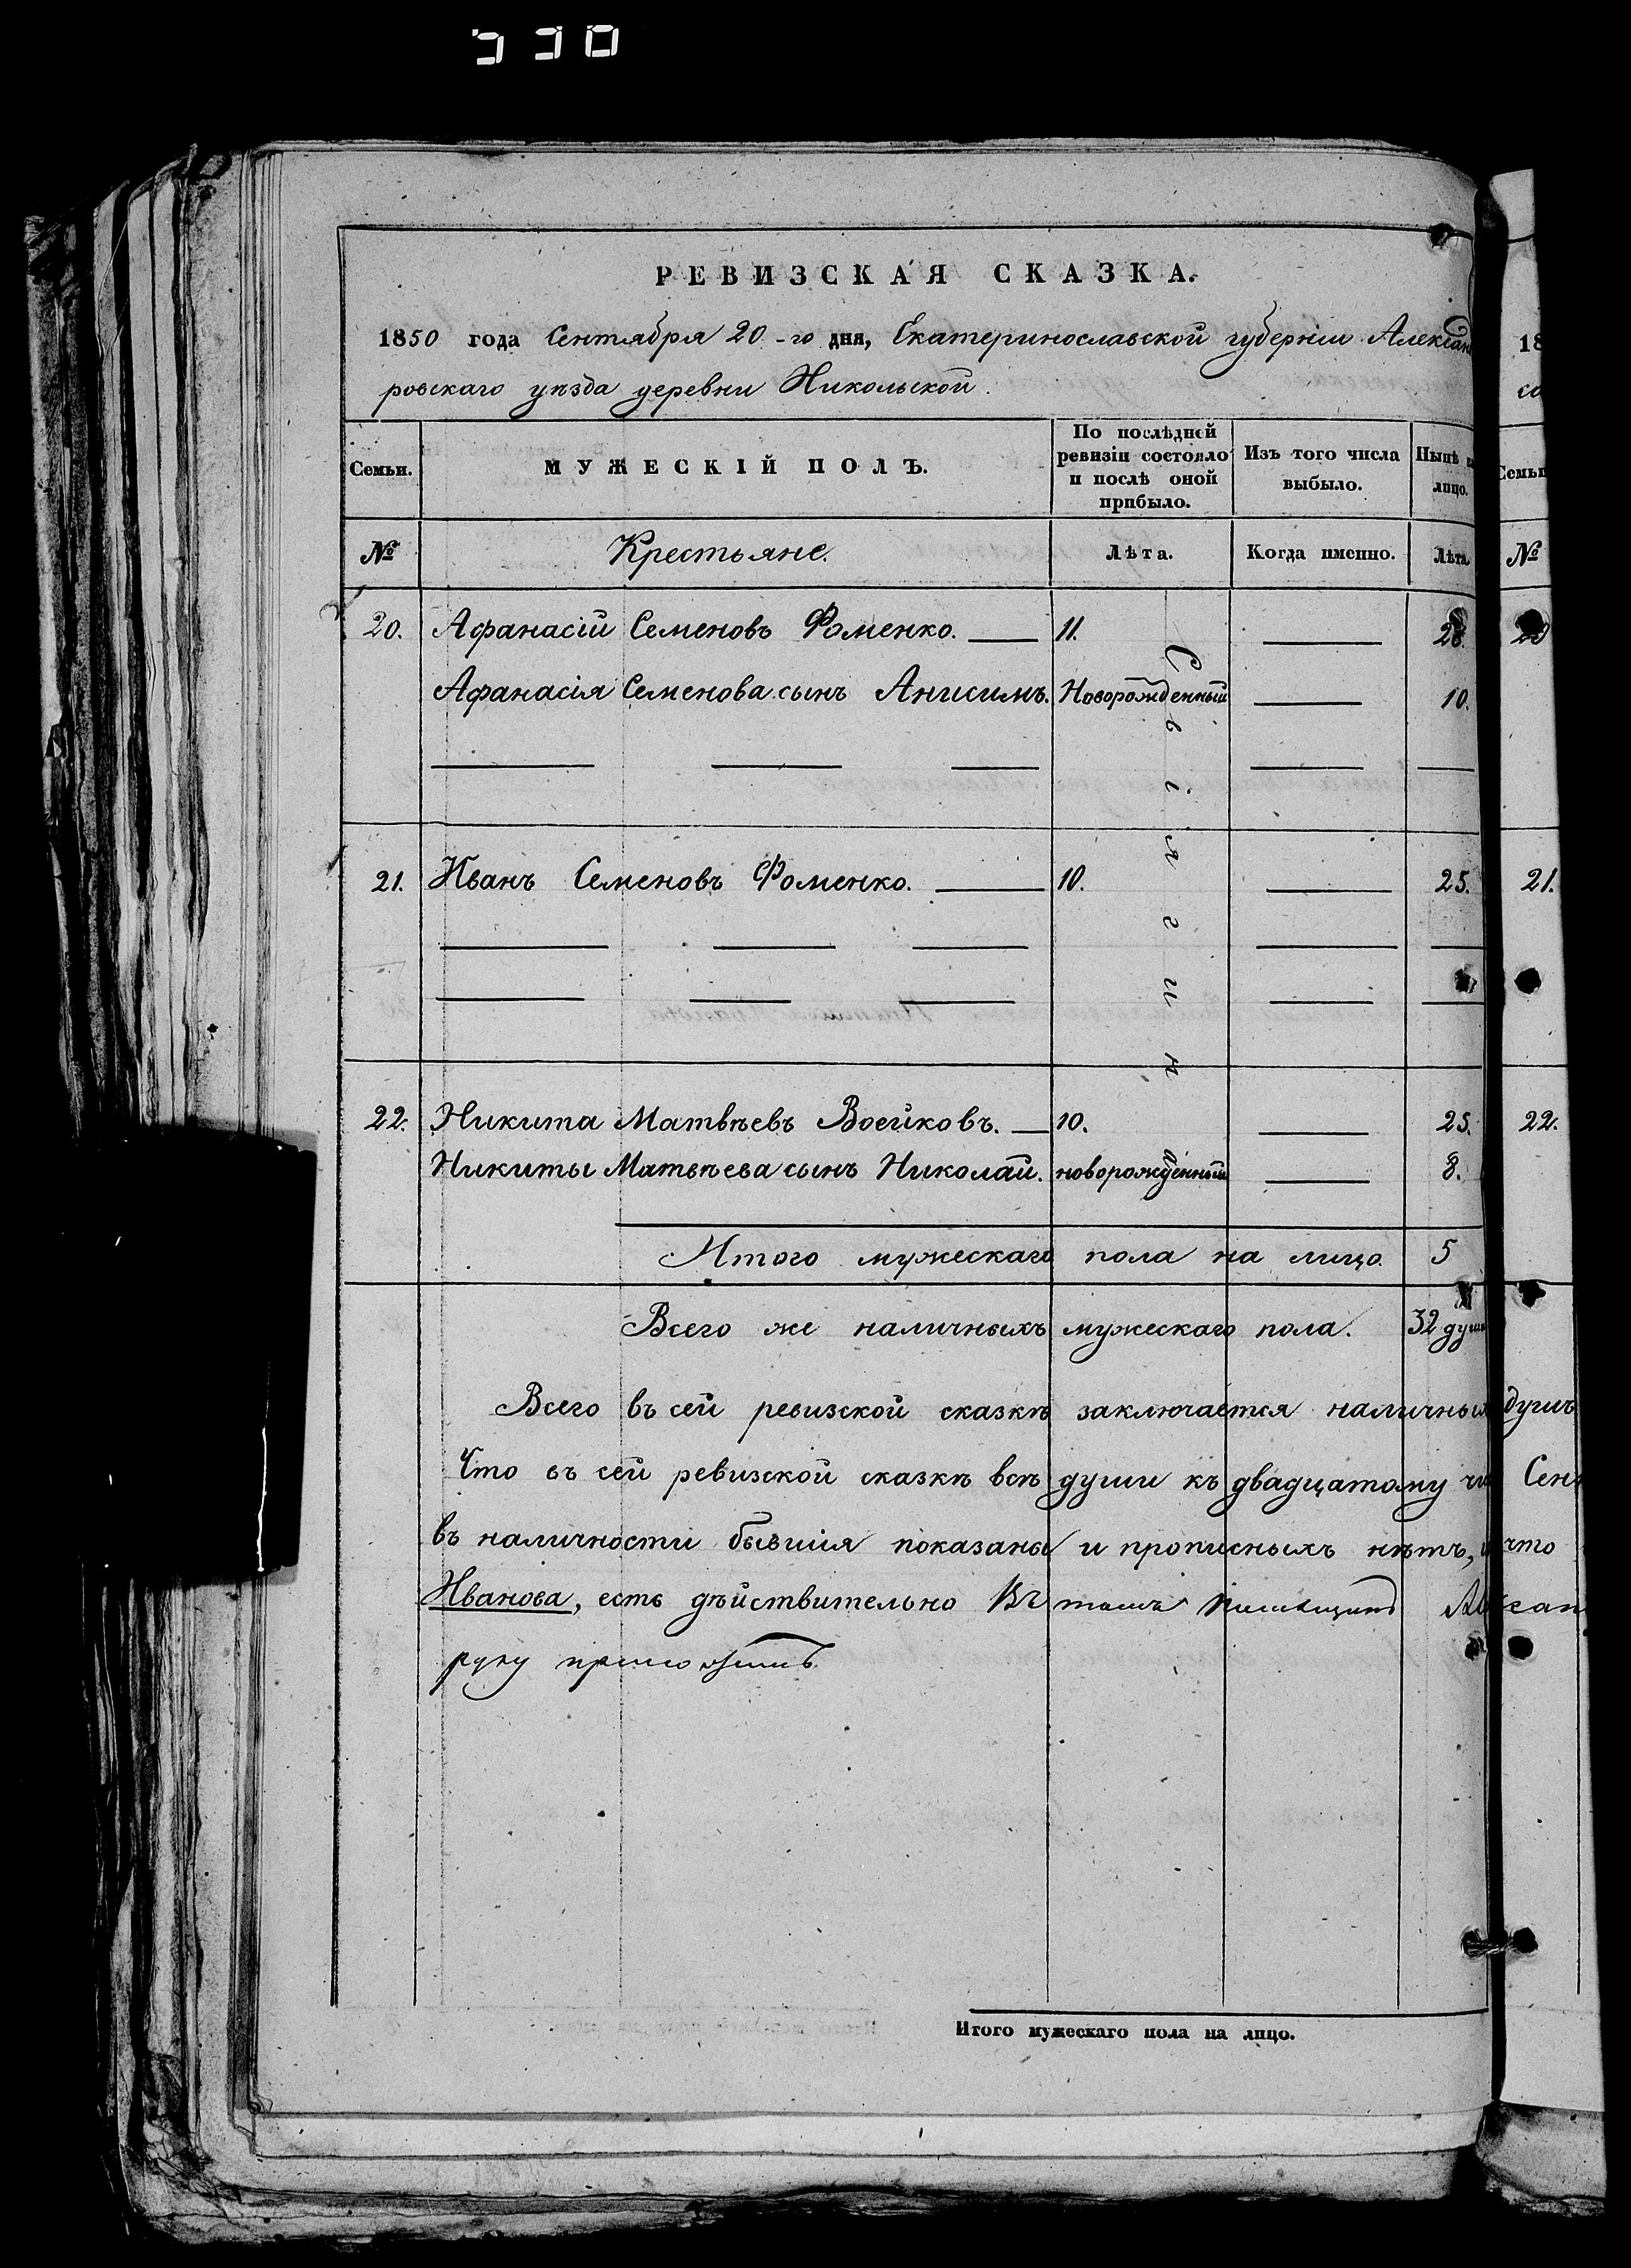 РЕВИЗСКАЯ СКАЗКА.
1850 года Сентября 20-го дня, Екатеринославской губерніи Алексан
ровскаго уѣзда деревни Никольской.
Семьи. МУЖЕСКІЙ ПОЛЪ. По послѣдней ревизіи состояло и послѣ оной прибыло. Изъ того числа выбыло. Нынѣ лицо. Семьи
№ Крестьяне. Лѣта. Когда именно. Лѣта. №
20. Афанасій Семеновъ Фоменко. 11. 28.
Афанасія Семенова сынъ Анисимъ. Новорожденный 10.
21. Иванъ Семеновъ Фоменко. 10. 25. 21.
22. Никита Матвѣевъ Воейковъ. 10. 25. 22.
Никиты Матвѣева сынъ Николай. новорожденный 8.
Итого мужескаго пола на лицо. 5
Всего же наличныхъ мужескаго пола. 32 душ
Всего въ сей ревизской сказкѣ заключается наличныхъ душъ
Что въ сей ревизской сказкѣ всѣ души къ двадцатому Сен
въ наличности бывшія показаны и прописныхъ нѣтъ, и что
Иванова, есть дѣйствительно Въ томъ
руку приложилъ
Итого мужескаго пола на лицо.